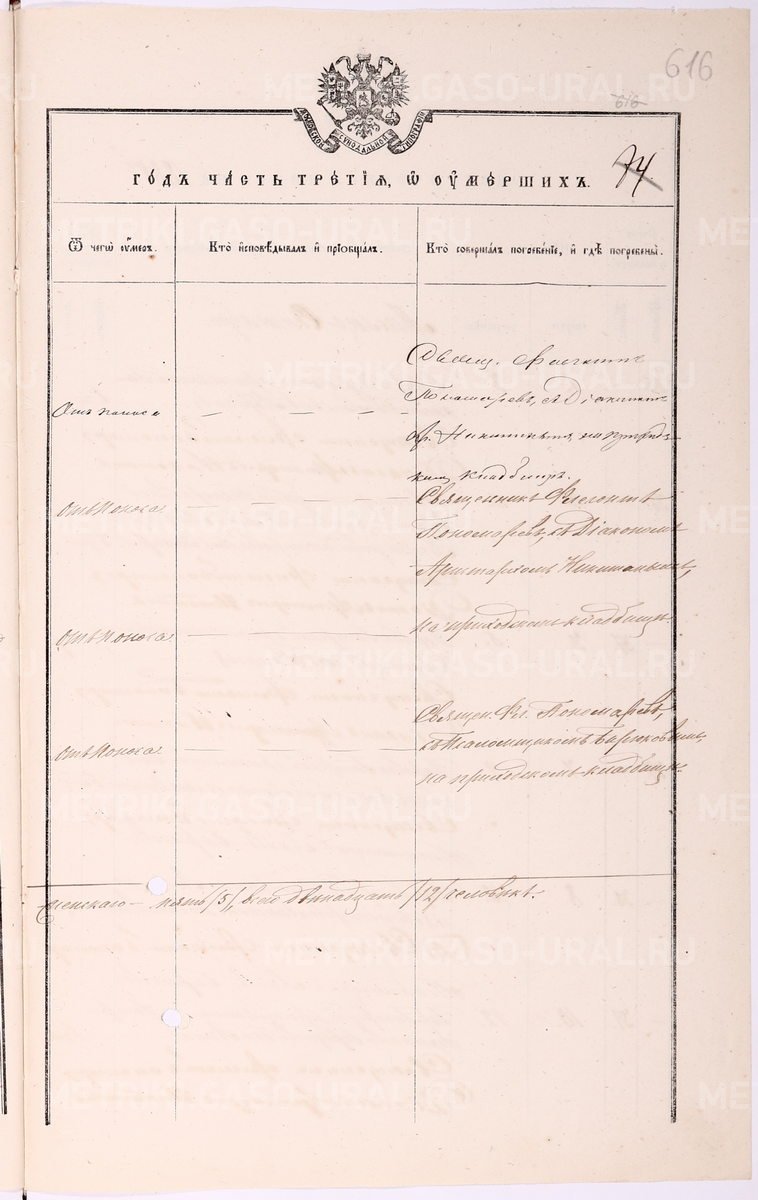 616
616
МОСКОВСКОЙ СѴНОДАЛЬНОЙ ТИПОГРАФІИ
74
ГО́ДЪ ЧА́СТЬ ТРЕ́ТІѦ, Ѡ ОУМЕ́РШИХЪ.
Ѿ чегѡ̀ оу́меръ.
Кто̀ и҆сповѣ́дывалъ и҆ прїѡбща́лъ.
Кто̀ соверша́лъ погребе́нїе, и҆ гдѣ̀ погребены̀.
Отъ поноса
Свящ.
Пономаревъ, съ Діакон
Ар. Никитинымъ, на приход
ком кладбищѣ.
отъ поноса.
Священникъ Флегонтъ
Пономаревъ, съ Діакономъ
Аристархомъ Никитинымъ,
на приходском кладбищѣ.
отъ поноса.
отъ поноса.
Священ. Фл. Пономаревъ,
съ Псаломщикомъ Бирюковымъ,
на приходскомъ кладбищѣ.
женскаго — пять /5/, всего двѣнадцать /12/ человѣкъ.
METRIKI.GASO-URAL.RU